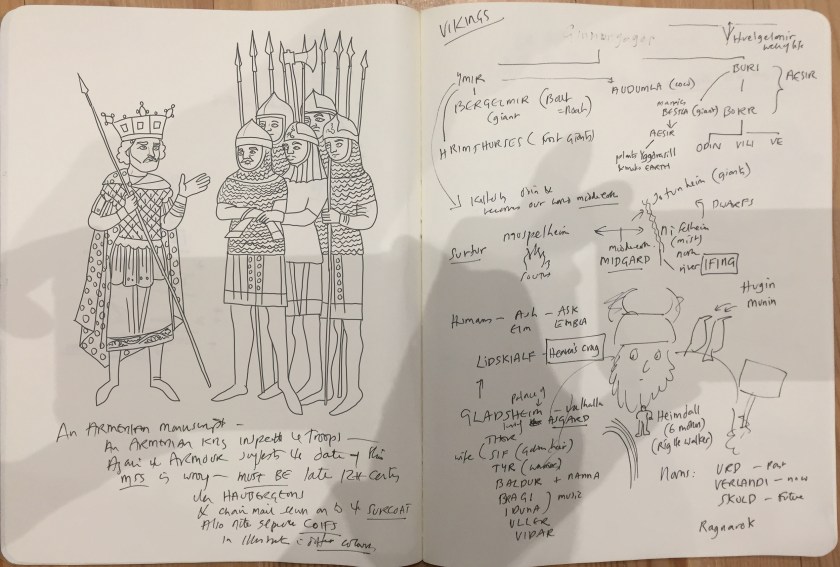 An ARMENIAN manuscript -
An ARMENIAN King inspects troops
Again ARMOUR suggests date of this
MSS is wrong - MUST BE late 12th Century
HAUBERGEONS
& chain mail sewn on to SURCOAT
Also note separate COIFS
in illustration
VIKINGS
Huelgelmir
YMIR
BERGELMIR (Boat
(giant
HRIMTHURSES (Frost Giants)
AUDUMLA (cow)
BURI
marries
BESTLA (giant)
BORR
AESIR
AESIR
ODIN VILI VE
plants Yggdrasill
EARTH
Killed by Odin &
becomes our world middle earth
Jotunheim (giants)
DWARFS
Surtur
muspelheim
SOUTH
middle earth
MIDGARD
Nifelheim
(mist)
north
river IFING
Hugin
munin
Humans - Ash - ASK
Elm EMBLA
LIDSKIALF - Heaven's crag
palace
GLADSHEIM - Valhalla
ASGARD
THOR
wife (SIF (Golden hair)
TYR (warrior)
BALDUR + NANNA
BRAGI ) music
IDUNA
ULLER
VIDAR
Heimdall
(Rig the walker)
Norns: URD - Past
VERLANDI - now
SKULD - Future
Ragnarok